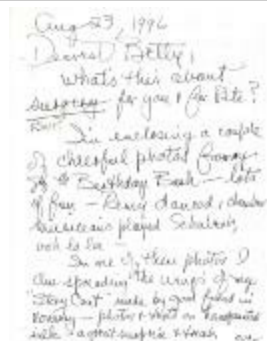 Aug 23, 1996
Dearest Betty,
What's this about
surgery for you & for Pete?
I'm enclosing a couple
of cheerful photos from
Birthday Bash — lots
of fun — danced, chamber
musicians played Schubert,
In one of these photos I
am spreading the wings of my
"Story Coat" made by good friend in
photos & on
silk — a great surprise &